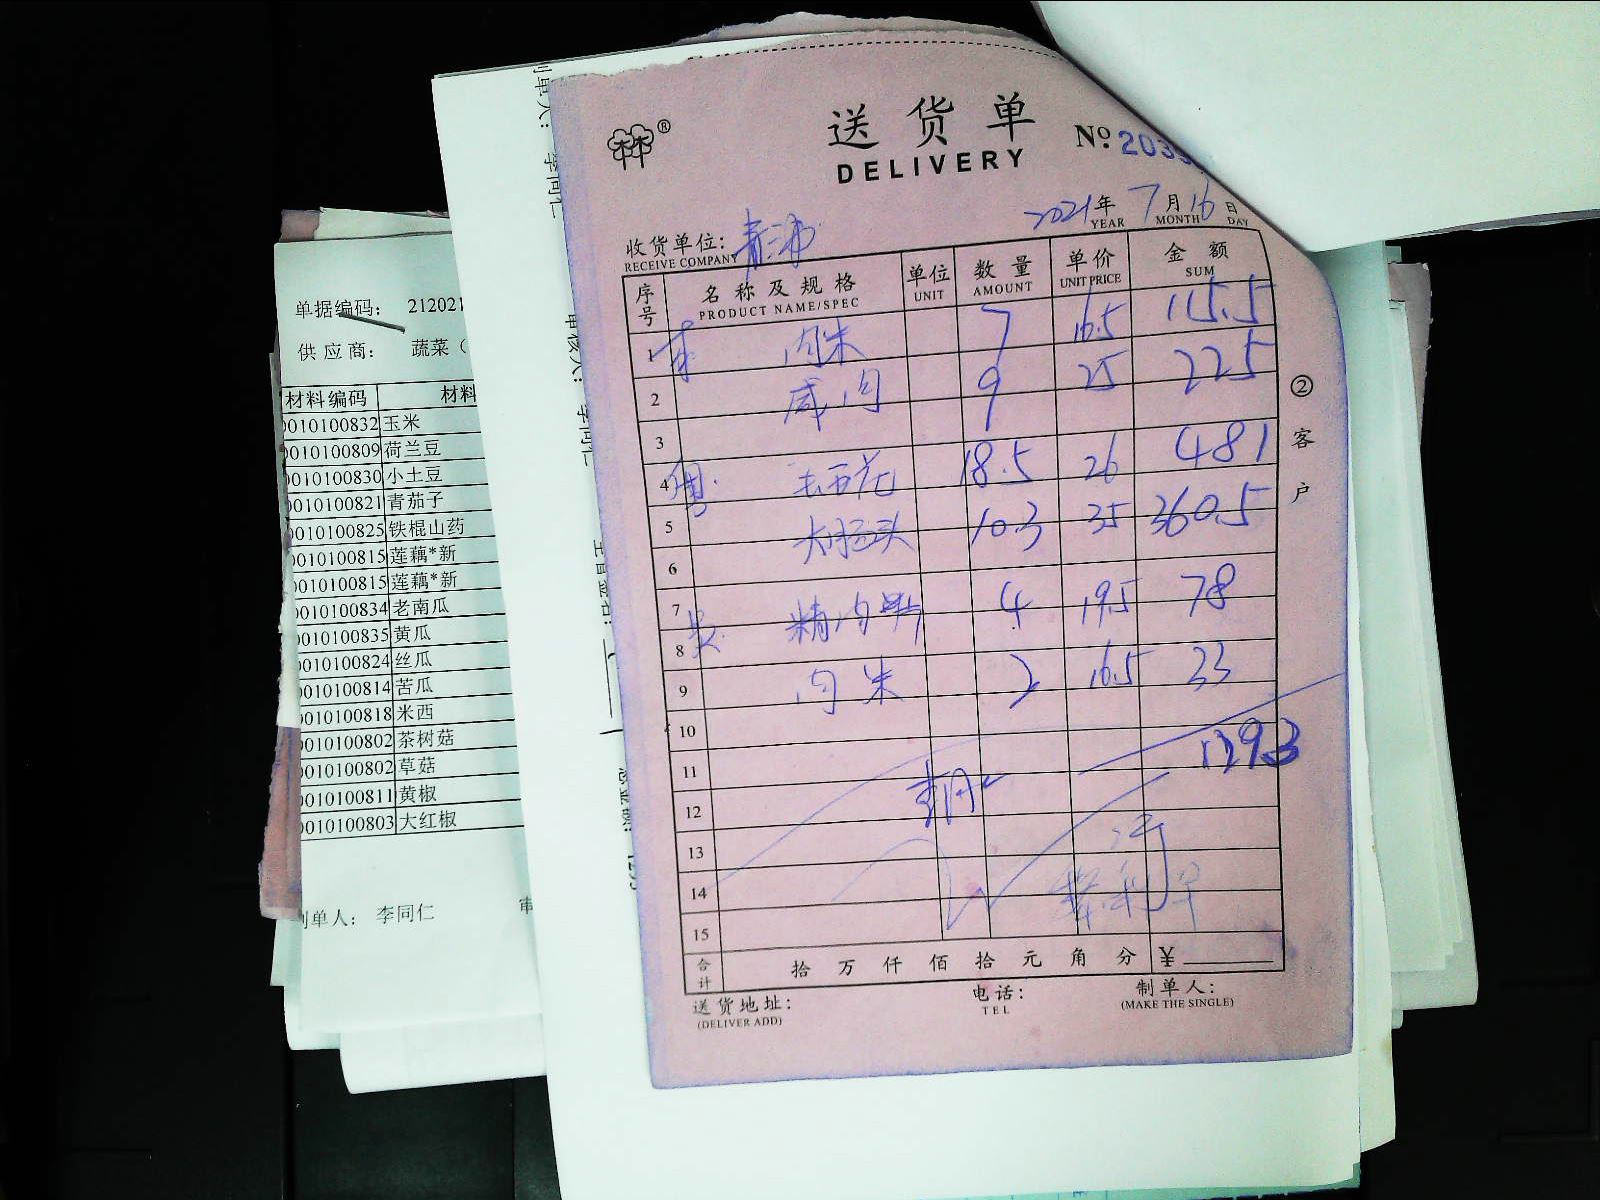 送货单
DELIVERY
№ 203
2021年 7月 16日
YEAR MONTH DAY
收货单位: 青浦
RECEIVE COMPANY
序号 名称及规格 单位 数量 单价 金额
PRODUCT NAME/SPEC UNIT AMOUNT UNIT PRICE SUM
1 本 肉末 7 16.5 115.5
2 咸肉 9 25 225
3
4 粤 五花 18.5 26 481
5 大肠头 10.3 35 360.5
6
7 精肉 4 19.5 78
8
9 肉末 2 16.5 33
10
11 1293
12
13
14
15
合计 拾 万 仟 佰 拾 元 角 分 ¥
送货地址: 电话: 制单人:
(DELIVER ADD) TEL (MAKE THE SINGLE)
② 客户
单据编码: 212021
供应商: 蔬菜（
材料编码 材料
0010100832 玉米
0010100809 荷兰豆
0010100830 小土豆
0010100821 青茄子
0010100825 铁棍山药
0010100815 莲藕*新
0010100815 莲藕*新
0010100834 老南瓜
0010100835 黄瓜
0010100824 丝瓜
0010100814 苦瓜
0010100818 米西
0010100802 茶树菇
0010100802 草菇
0010100811 黄椒
0010100803 大红椒
制单人: 李同仁 审
制单人: 李同仁
审核人: 李同仁